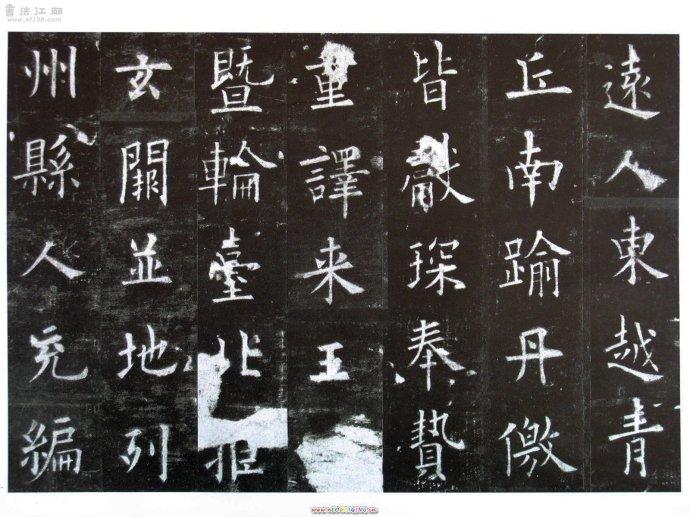 遠人東越青
丘南踰丹徼
皆獻琛奉贄
重譯来王
暨輪臺北拒
玄闕並地列
州縣人充編
書法江湖
www.sf108.com